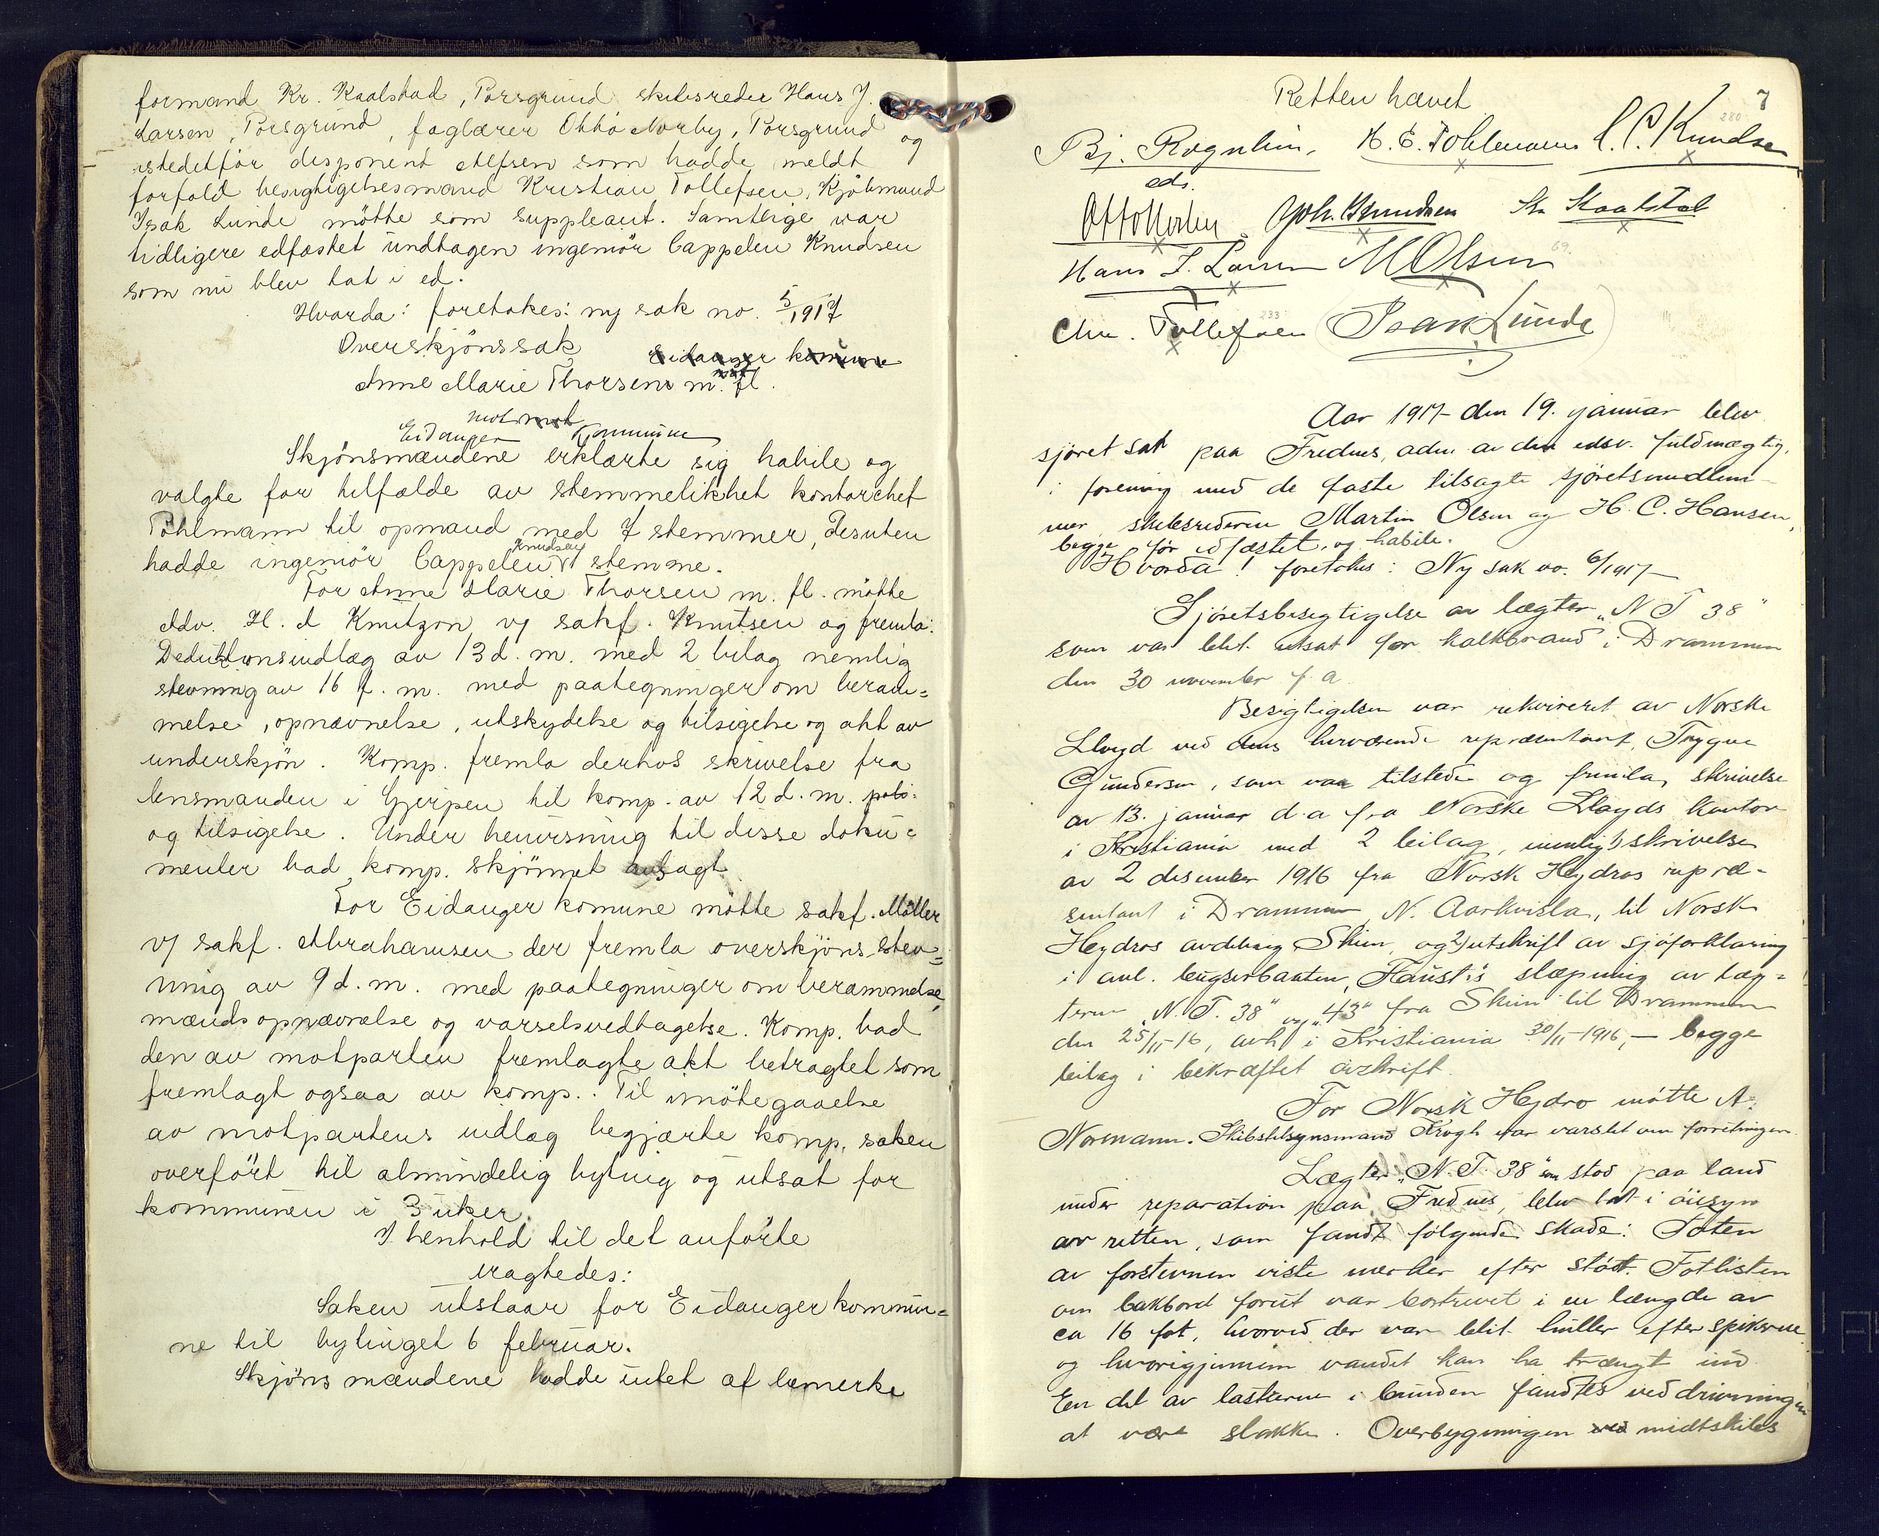 formand Kr. Kaalstad, Porsgrund skibsreder Hans J.
Larsen, Porsgrund, faglærer Otto Norby, Porsgrund og
istedetfor disponent Alfsen som hadde meldt
forfald besigtigelsesmand Kristian Tollefsen, Kjøbmand
Isak Lunde møtte som suppleant. Samtlige var
tidligere edfæstet undtagen ingeniør Cappelen Knudsen
som nu blev tat i ed.
Hvorda: foretokes: ny sak no. 5/1917
Overskjønssak Eidanger komune
Anne Marie Thorsen m. fl.
mot
Eidanger Kommune
Skjønsmændene erklærte sig habile og
valgte for tilfælde av stemmelikhet kontorchef
Pohlmann til opmand med 7 stemmer, Desuten
hadde ingeniør Cappelen Knudsen 1 stemme.
For Anne Marie Thorsen m. fl. møtte
Adv. H. d Knutzon v/ sakf. Knutsen og fremla:
Deduktionsindlæg av 13 d. m. med 2 bilag nemlig
stevning av 16 f. m. med paategninger om beram=
melse, opnævnelse, utskydelse og tilsigelse og akt av
underskjøn. Komp. fremla derhos skrivelse fra
lensmanden i Gjerpen til komp. av 12 d. m.
og tilsigelse. Under henvisning til disse doku=
menter bad komp. skjønnet avsagt.
For Eidanger komune møtte sakf. Møller
v/ sakf. Abrahamsen der fremla overskjøns stev=
ning av 9 d. m. med paategninger om berammelse,
mændsopnævnelse og varselsvedtagelse. Komp. bad
den av motparten fremlagte akt betragtet som
fremlagt ogsaa av komp.. Til imøtegaaelse
av motpartens indlæg begjærte komp. saken
overført til almindelig byting og utsat for
kommunen i 3 uker.
I henhold til det anførte
eragtedes:
Saken utstaar for Eidanger kommu=
ne til bytinget 6 februar.
Skjønsmændene hadde intet at bemerke
7
Retten hævet
280
Bj. Rognlien, H. E. Pohlmann C. C. Knudsen
eds.
Otto Norby Joh. Knudsen Kr Kaalstad
Hans J. Larsen M Olsen 69.
Chr. Tollefsen 233 Isak Lunde
Aar 1917 den 19. januar blev
sjøret sat paa Frednes, adm. av den edsv. fuldmægtig,
i forening med de faste tilsagte sjøretsmedlem-
mer skibsrederne Martin Olsen og H. C. Hansen,
begge før edfæstet, og habile.
Hvorda! foretokes: Ny sak no. 6/1917
Sjøretsbesigtigelse av lægter „N T 38"
som var blit utsat for kalkbrand i Drammen
den 30 november f. a.
Besigtigelsen var rekvireret av Norske
Lloyd ved dens herværende repræsentant, Trygve
Gundersen, som var tilstede og fremla, skrivelse
av 13. januar d. a fra Norske Lloyds kontor
i Kristiania med 2 bilag, nemlig 1) skrivelse
av 2 desember 1916 fra Norsk Hydros repræ-
sentant i Drammen N. Aarkvisla, til Norsk
Hydros avdeling Skien, og 2) utskrift av sjøforklaring
i anl. bugserbaaten „Faust"s slæpning av læg=
terne „N. T. 38" og „43" fra Skien til Drammen
den 25/11-16, avh. i Kristiania 30/11-1916, — begge
bilag i bekræftet avskrift.
For Norsk Hydro møtte A.
Normann. Skibstilsynsmand Krogh var varslet om forretningen.
Lægter „N. T. 38" som stod paa land
under reparation paa Frednes, blev tat i øiesyn
av retten, som fandt følgende skade: Foten
av forstevnen viste merker efter støtt. Fotlisten
om bakbord forut var bortrevet i en længde av
ca 16 fot, hvorved der var blit huller efter spikrene
og hvorigjennem vandet kan ha trængt ind.
En del av laskerne i bunden fandtes ved drivningen
at være slakke. Overbygningen ved midtskibs